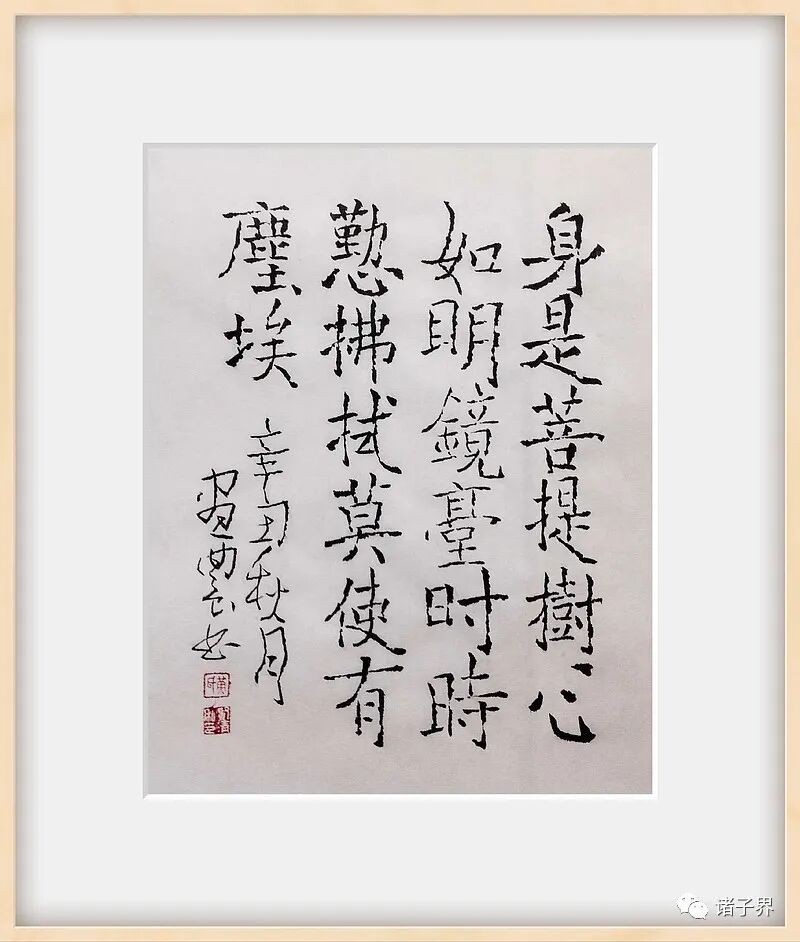 身是菩提樹心
如明鏡臺时時
懃拂拭莫使有
塵埃
辛丑秋月
书
诸子界